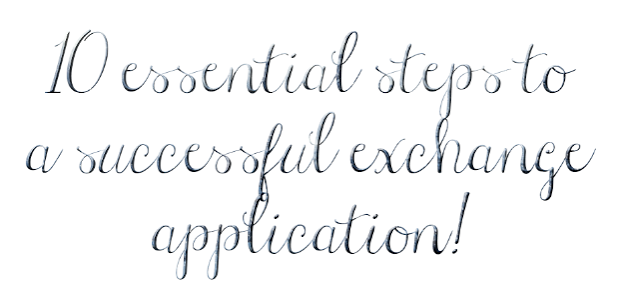 10 essential steps to
a successful exchange
application!